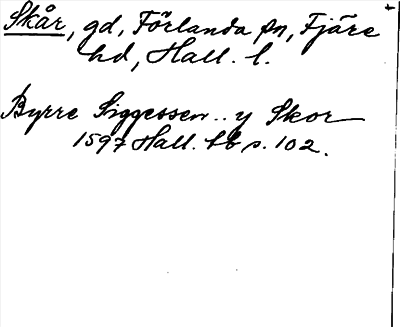 Skår, gd, Förlanda sn, Fjäre
hd, Hall. l.
Byrre Siggessen .. y Skor
1597 Hall. lb s. 102.